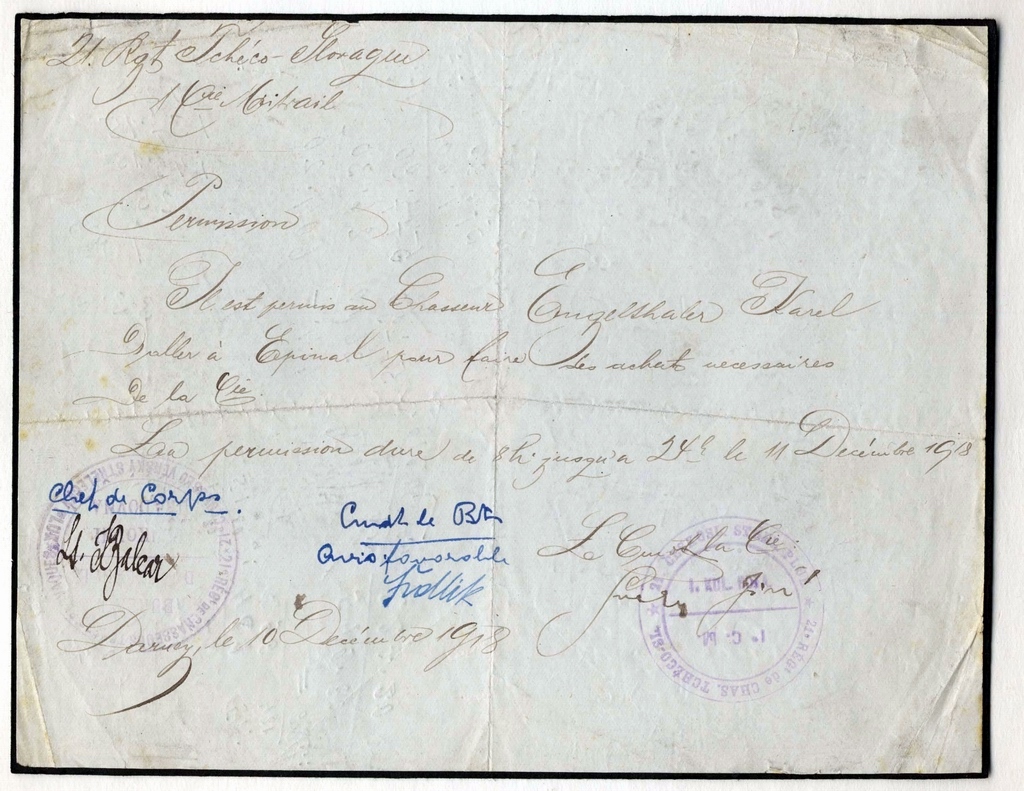 21. Rgt Tchéco-Slovaque
1 Cie Mitrail
Permission
Il est permis au Chasseur Engelthaler Karel
D'aller à Epinal pour faire des achats necessaires
De la Cie
La permission dure de 8h jusqu'a 24h le 11 Décémbre 1918
Chef de Corps.
Cmdt de Btn
Avis favorable
Le Cmdt la Cie
Darney, le 10 Décémbre 1918
1. KUL. ROTA
1. C. M.
* 21e RÉGt de CHAS. TCHÉCO-SL. *